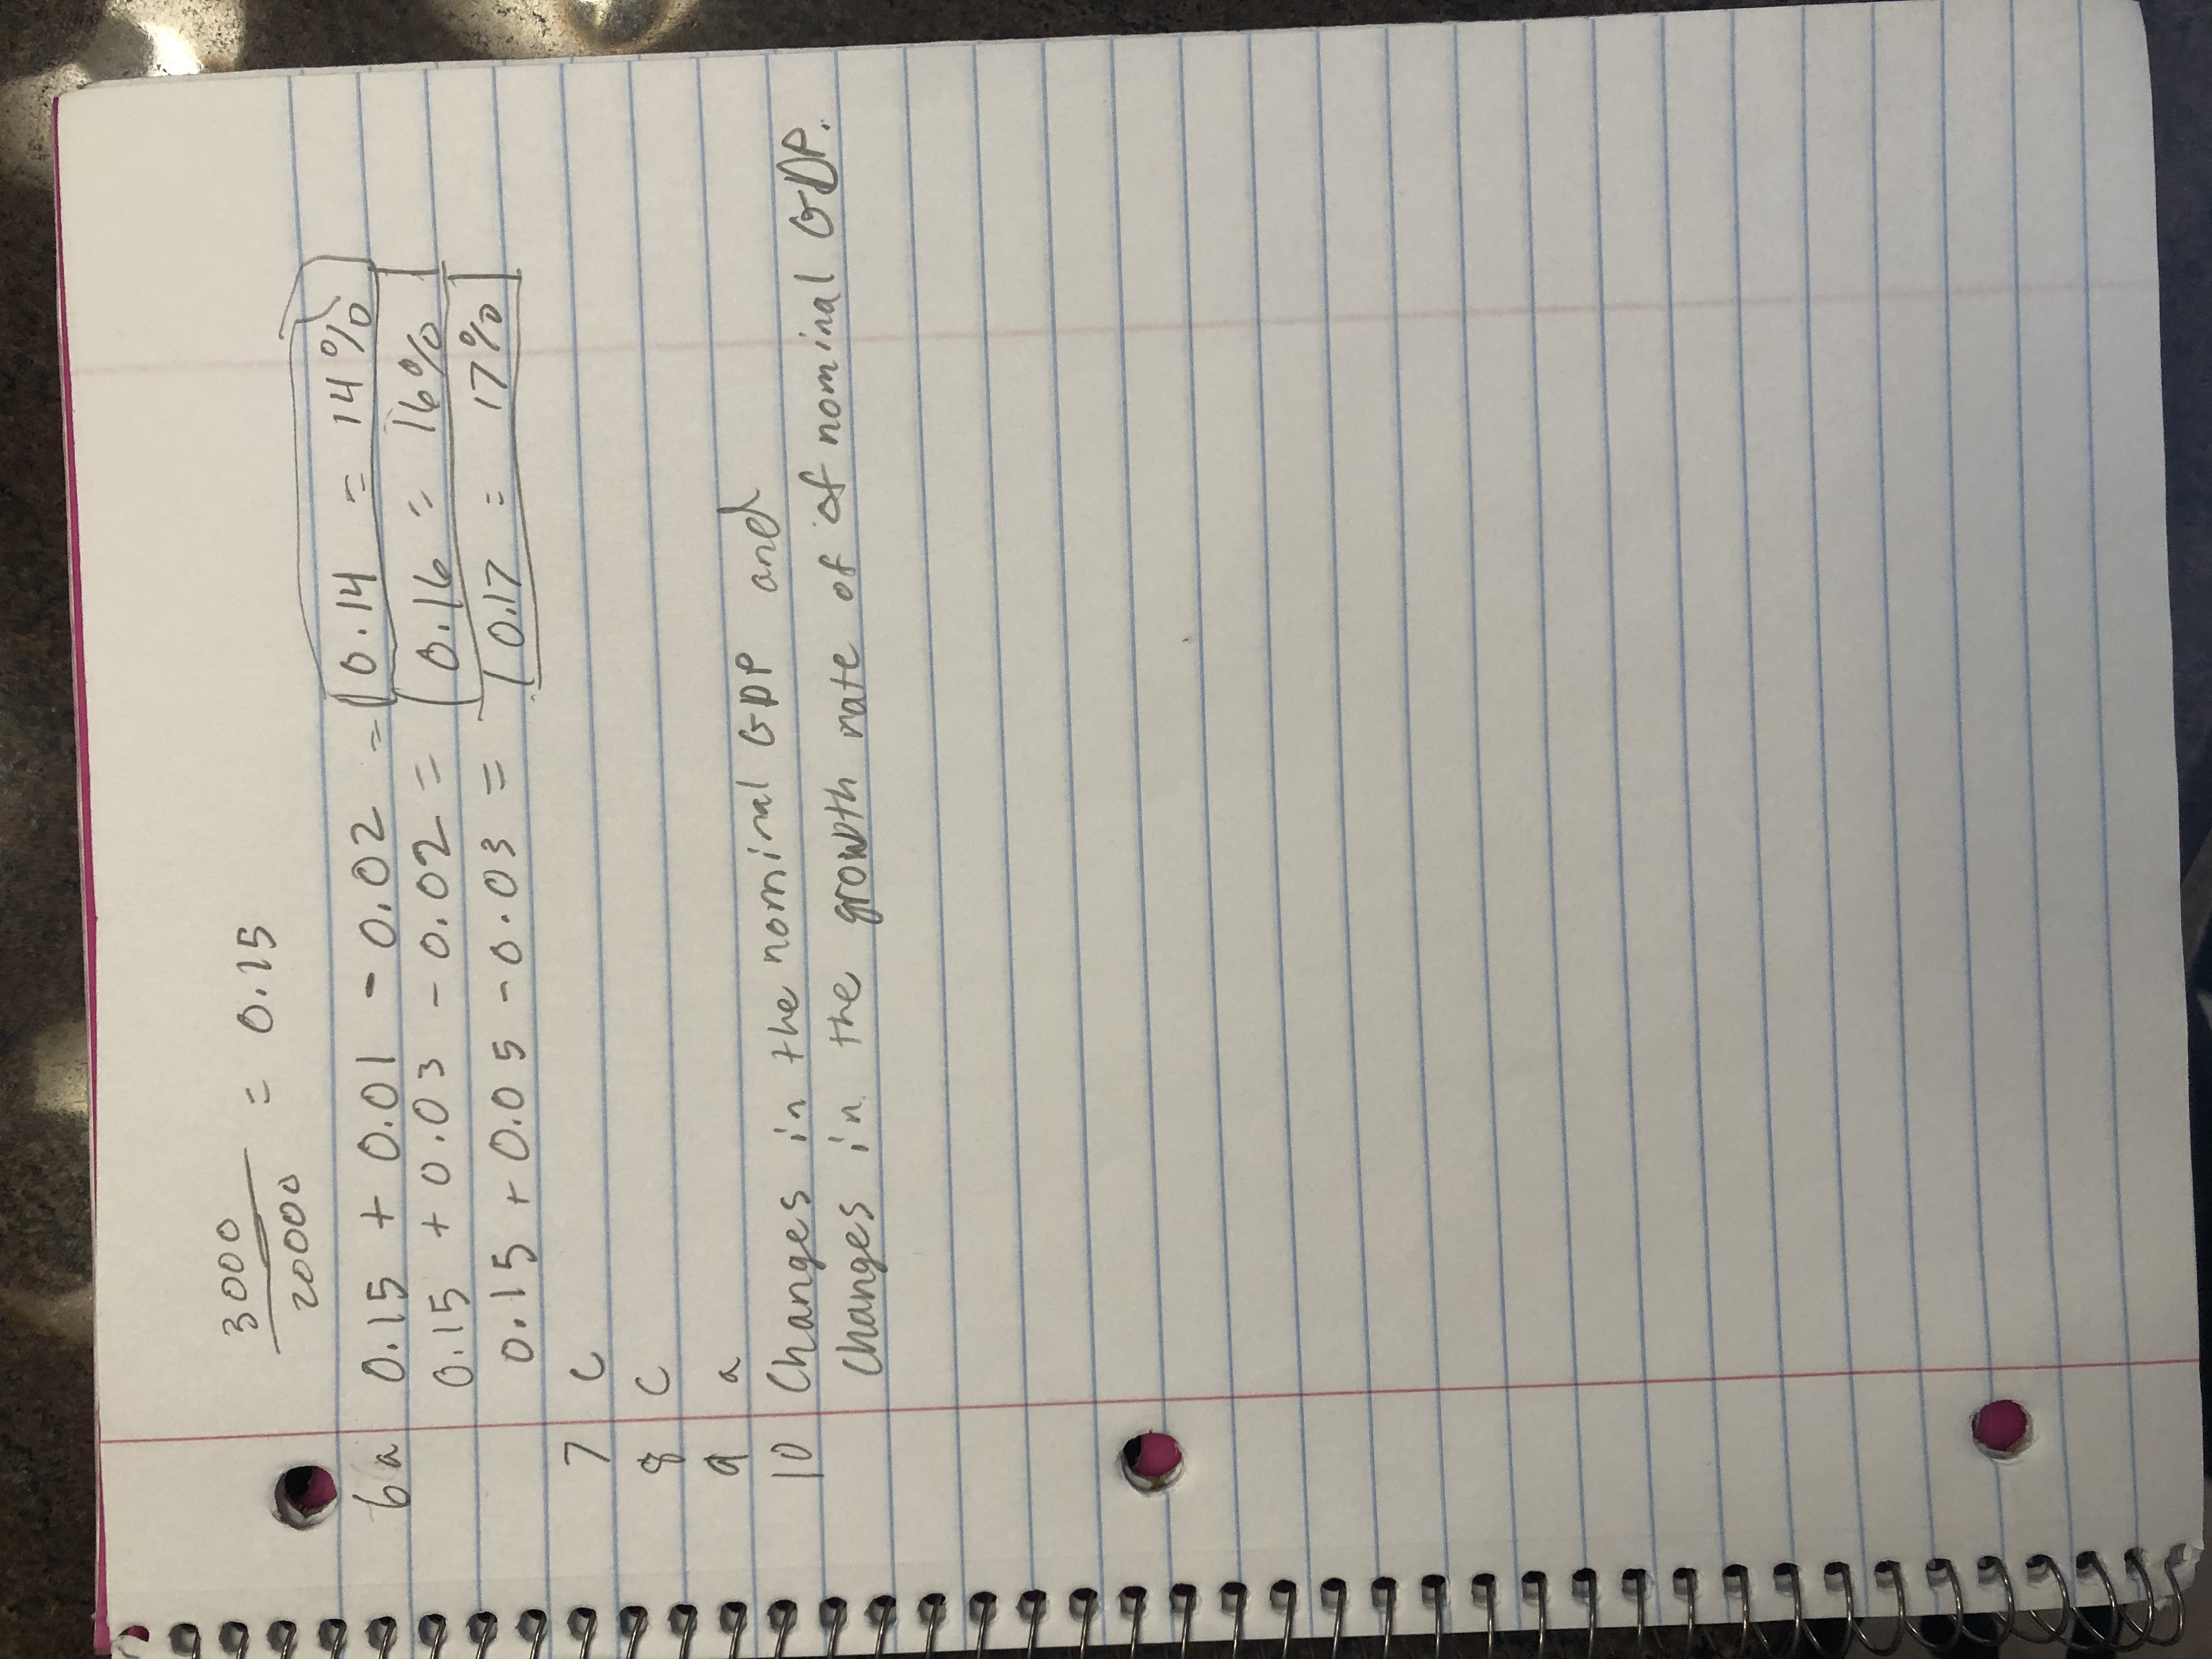 3000
20000 = 0.15
6a 0.15 + 0.01 - 0.02 = 0.14 = 14%
0.15 + 0.03 - 0.02 = 0.16 = 16%
0.15 + 0.05 - 0.03 = 0.17 = 17%
7 C
8 C
9 a
10 Changes in the nominal GDP and
changes in the growth rate of of nominal GDP.